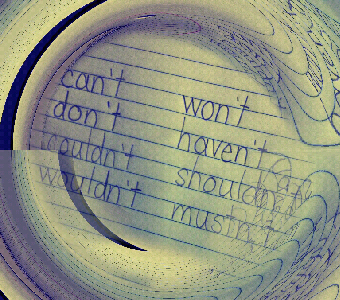 can't won't
don't haven't
couldn't shouldn't
wouldn't mustn't